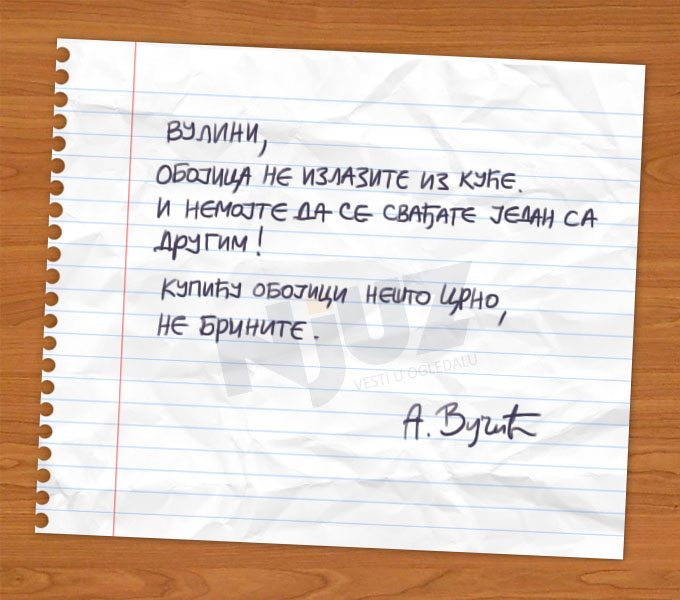 ВУЛИНИ,
ОБОЈИЦА НЕ ИЗЛАЗИТЕ ИЗ КУЋЕ.
И НЕМОЈТЕ ДА СЕ СВАЂАТЕ ЈЕДАН СА
ДРУГИМ!
КУПИЋУ ОБОЈИЦИ НЕШТО ЦРНО,
НЕ БРИНИТЕ.
NJUZ
VESTI U OGLEDALU
А. Вучић